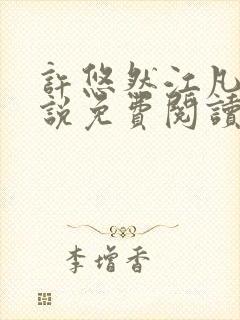 許悠然江凡
說免費閱讀
李增香